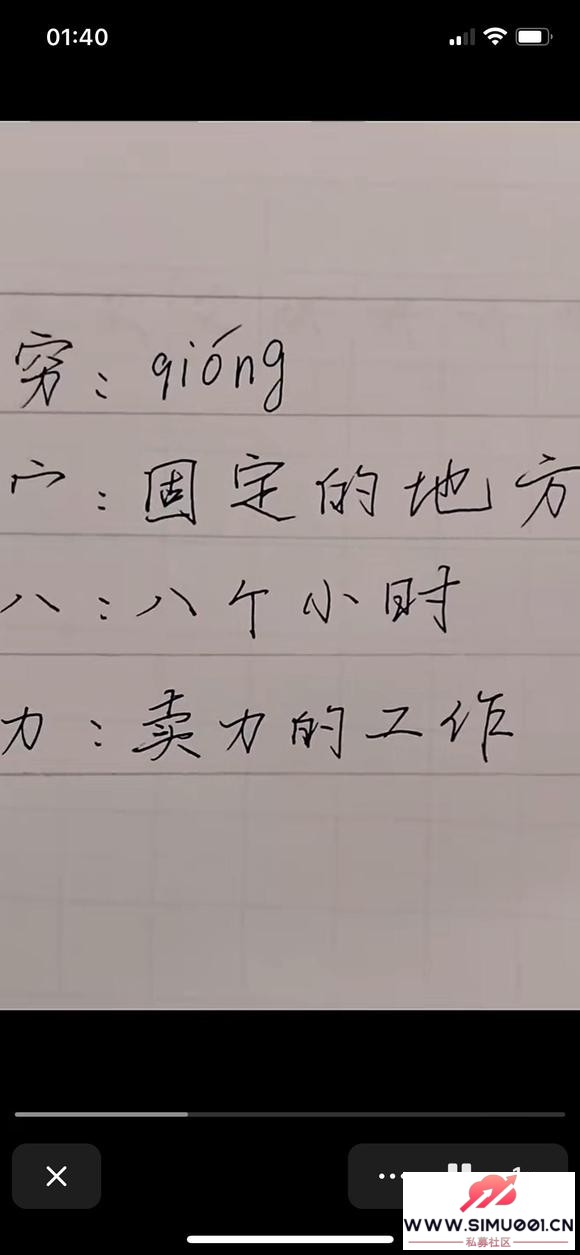 01:40
穷：qióng
宀：固定的地方
八：八个小时
力：卖力的工作
WWW.SIMU001.CN
私募社区